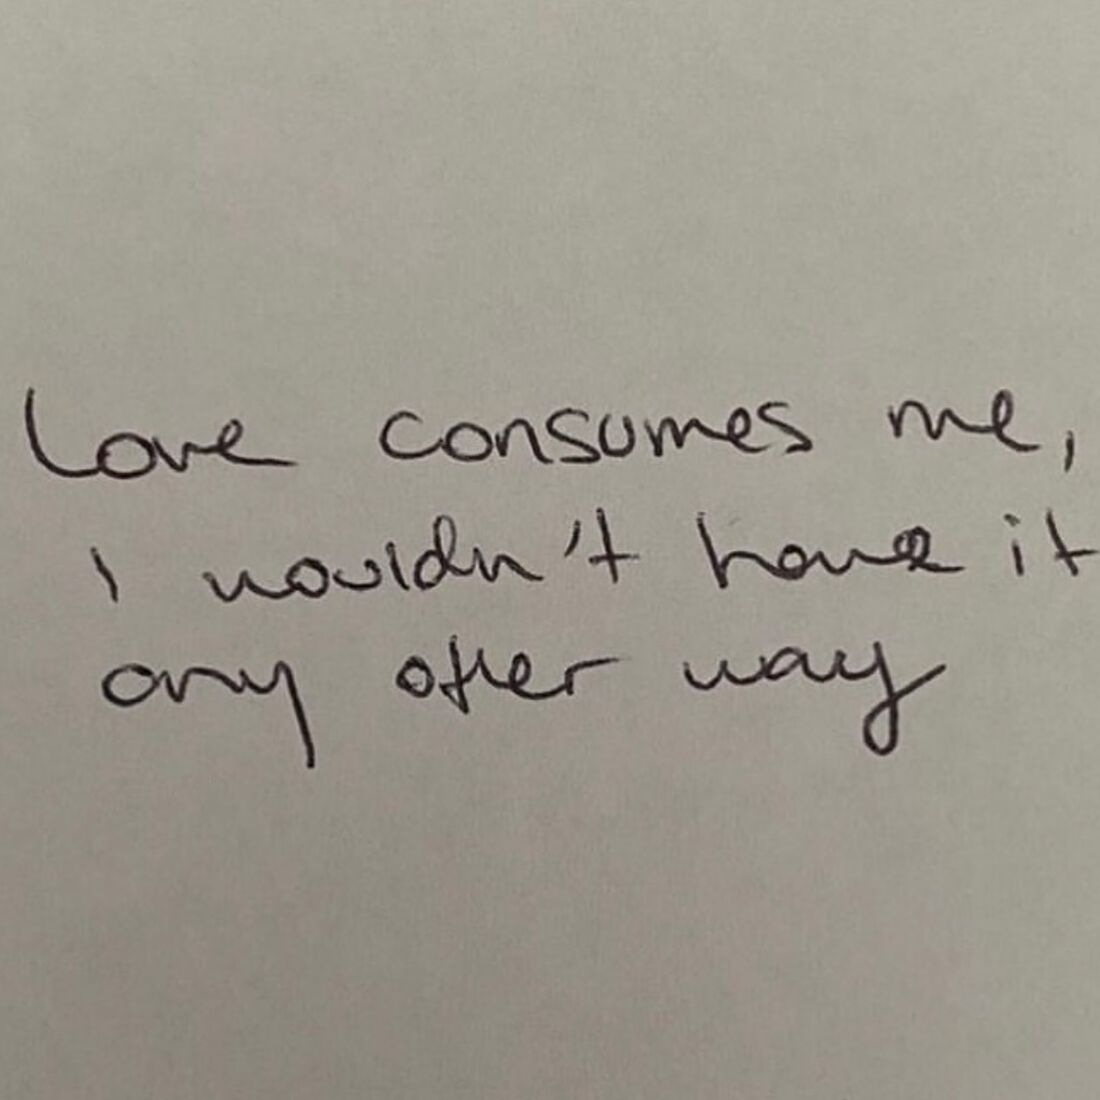 Love consumes me,
I wouldn't have it
any other way